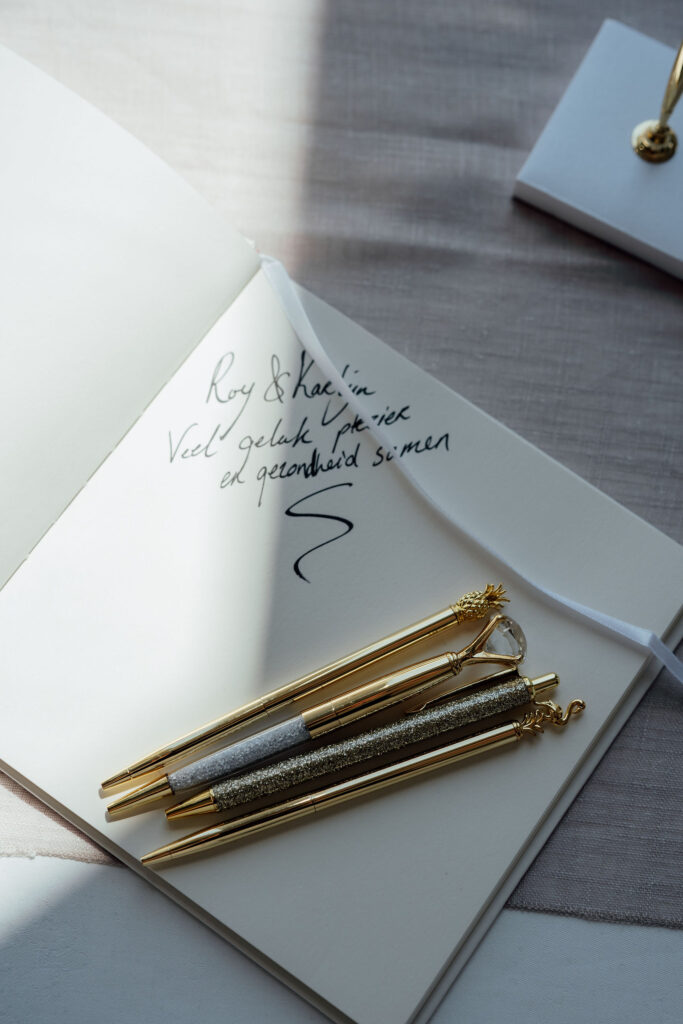 Roy & Karlijn
Veel geluk plezier
en gezondheid samen